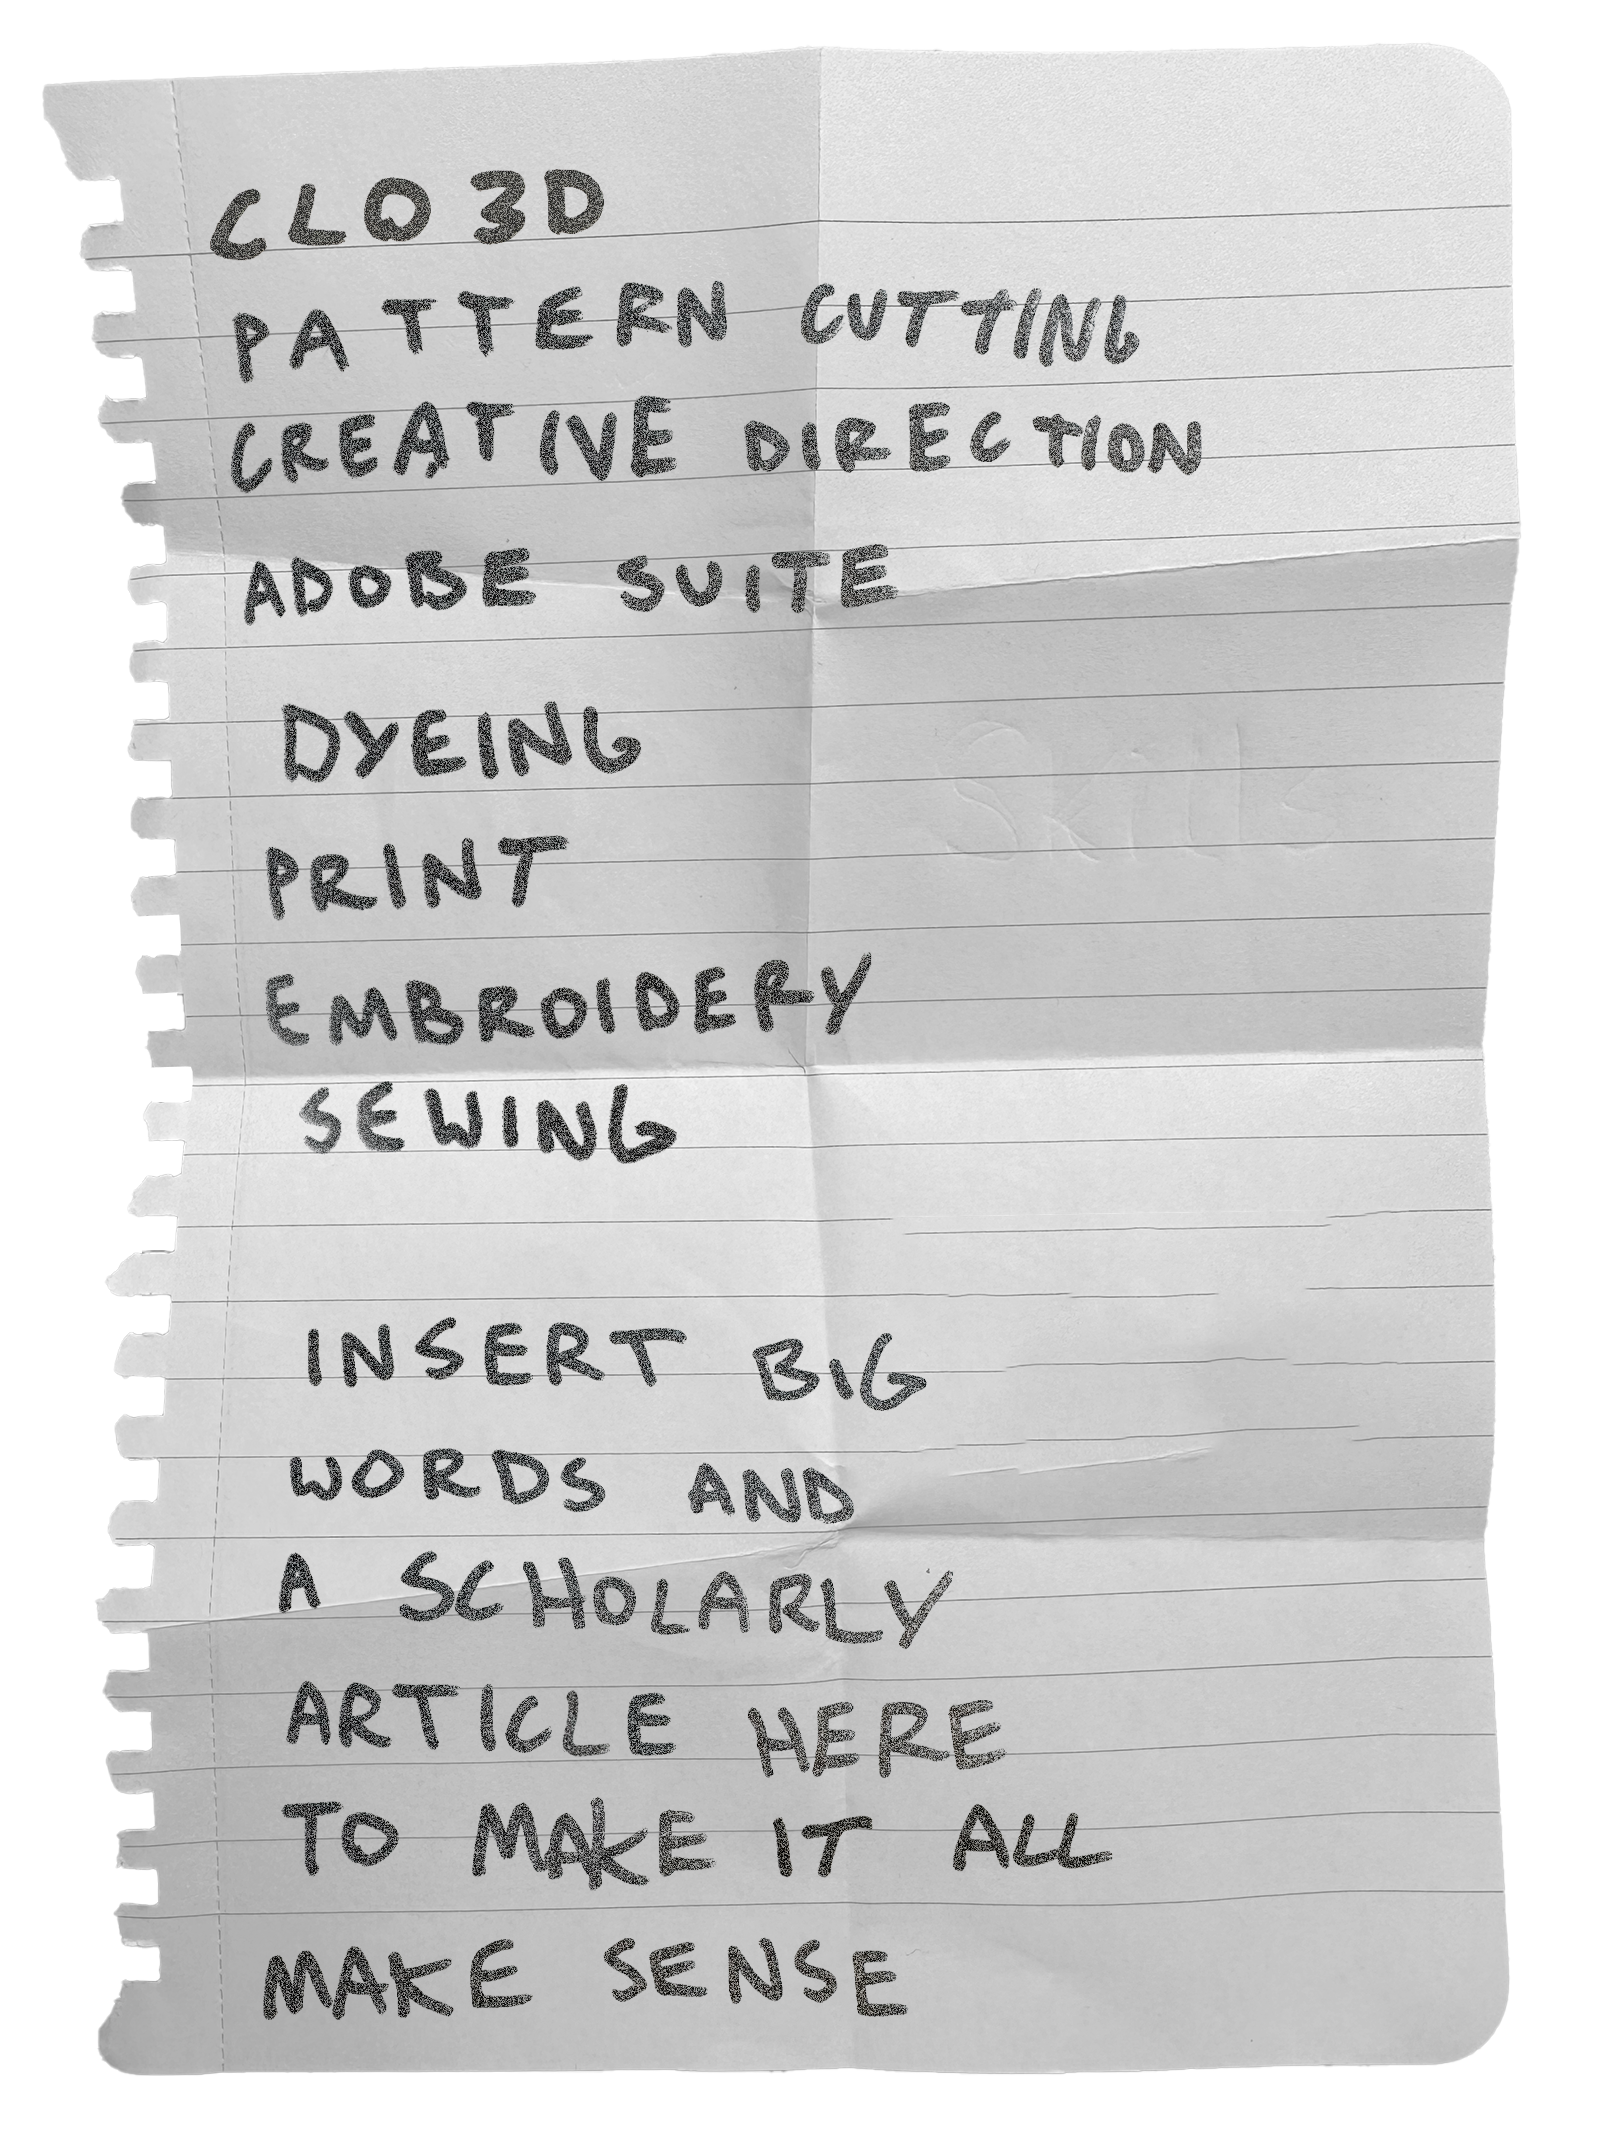 CLO 3D
PATTERN CUTTING
CREATIVE DIRECTION
ADOBE SUITE
DYEING
Skills
PRINT
EMBROIDERY
SEWING
INSERT BIG
WORDS AND
A SCHOLARLY
ARTICLE HERE
TO MAKE IT ALL
MAKE SENSE